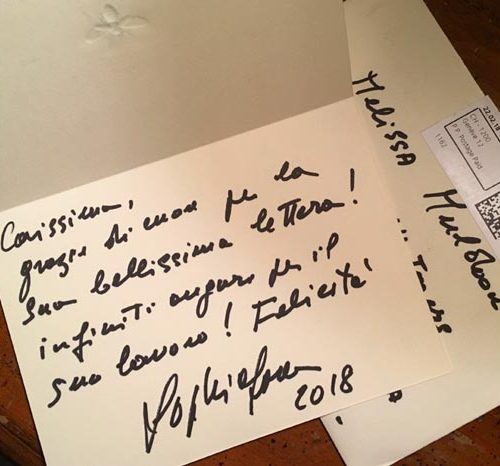 Carissima,
grazie di cuore per la
sua bellissima lettera!
infiniti auguri per il
suo lavoro! Felicità
Sophia Loren
2018
Melissa
22.02.1
CH - 1200
Genève 12
P.P. Postage Paid
1162